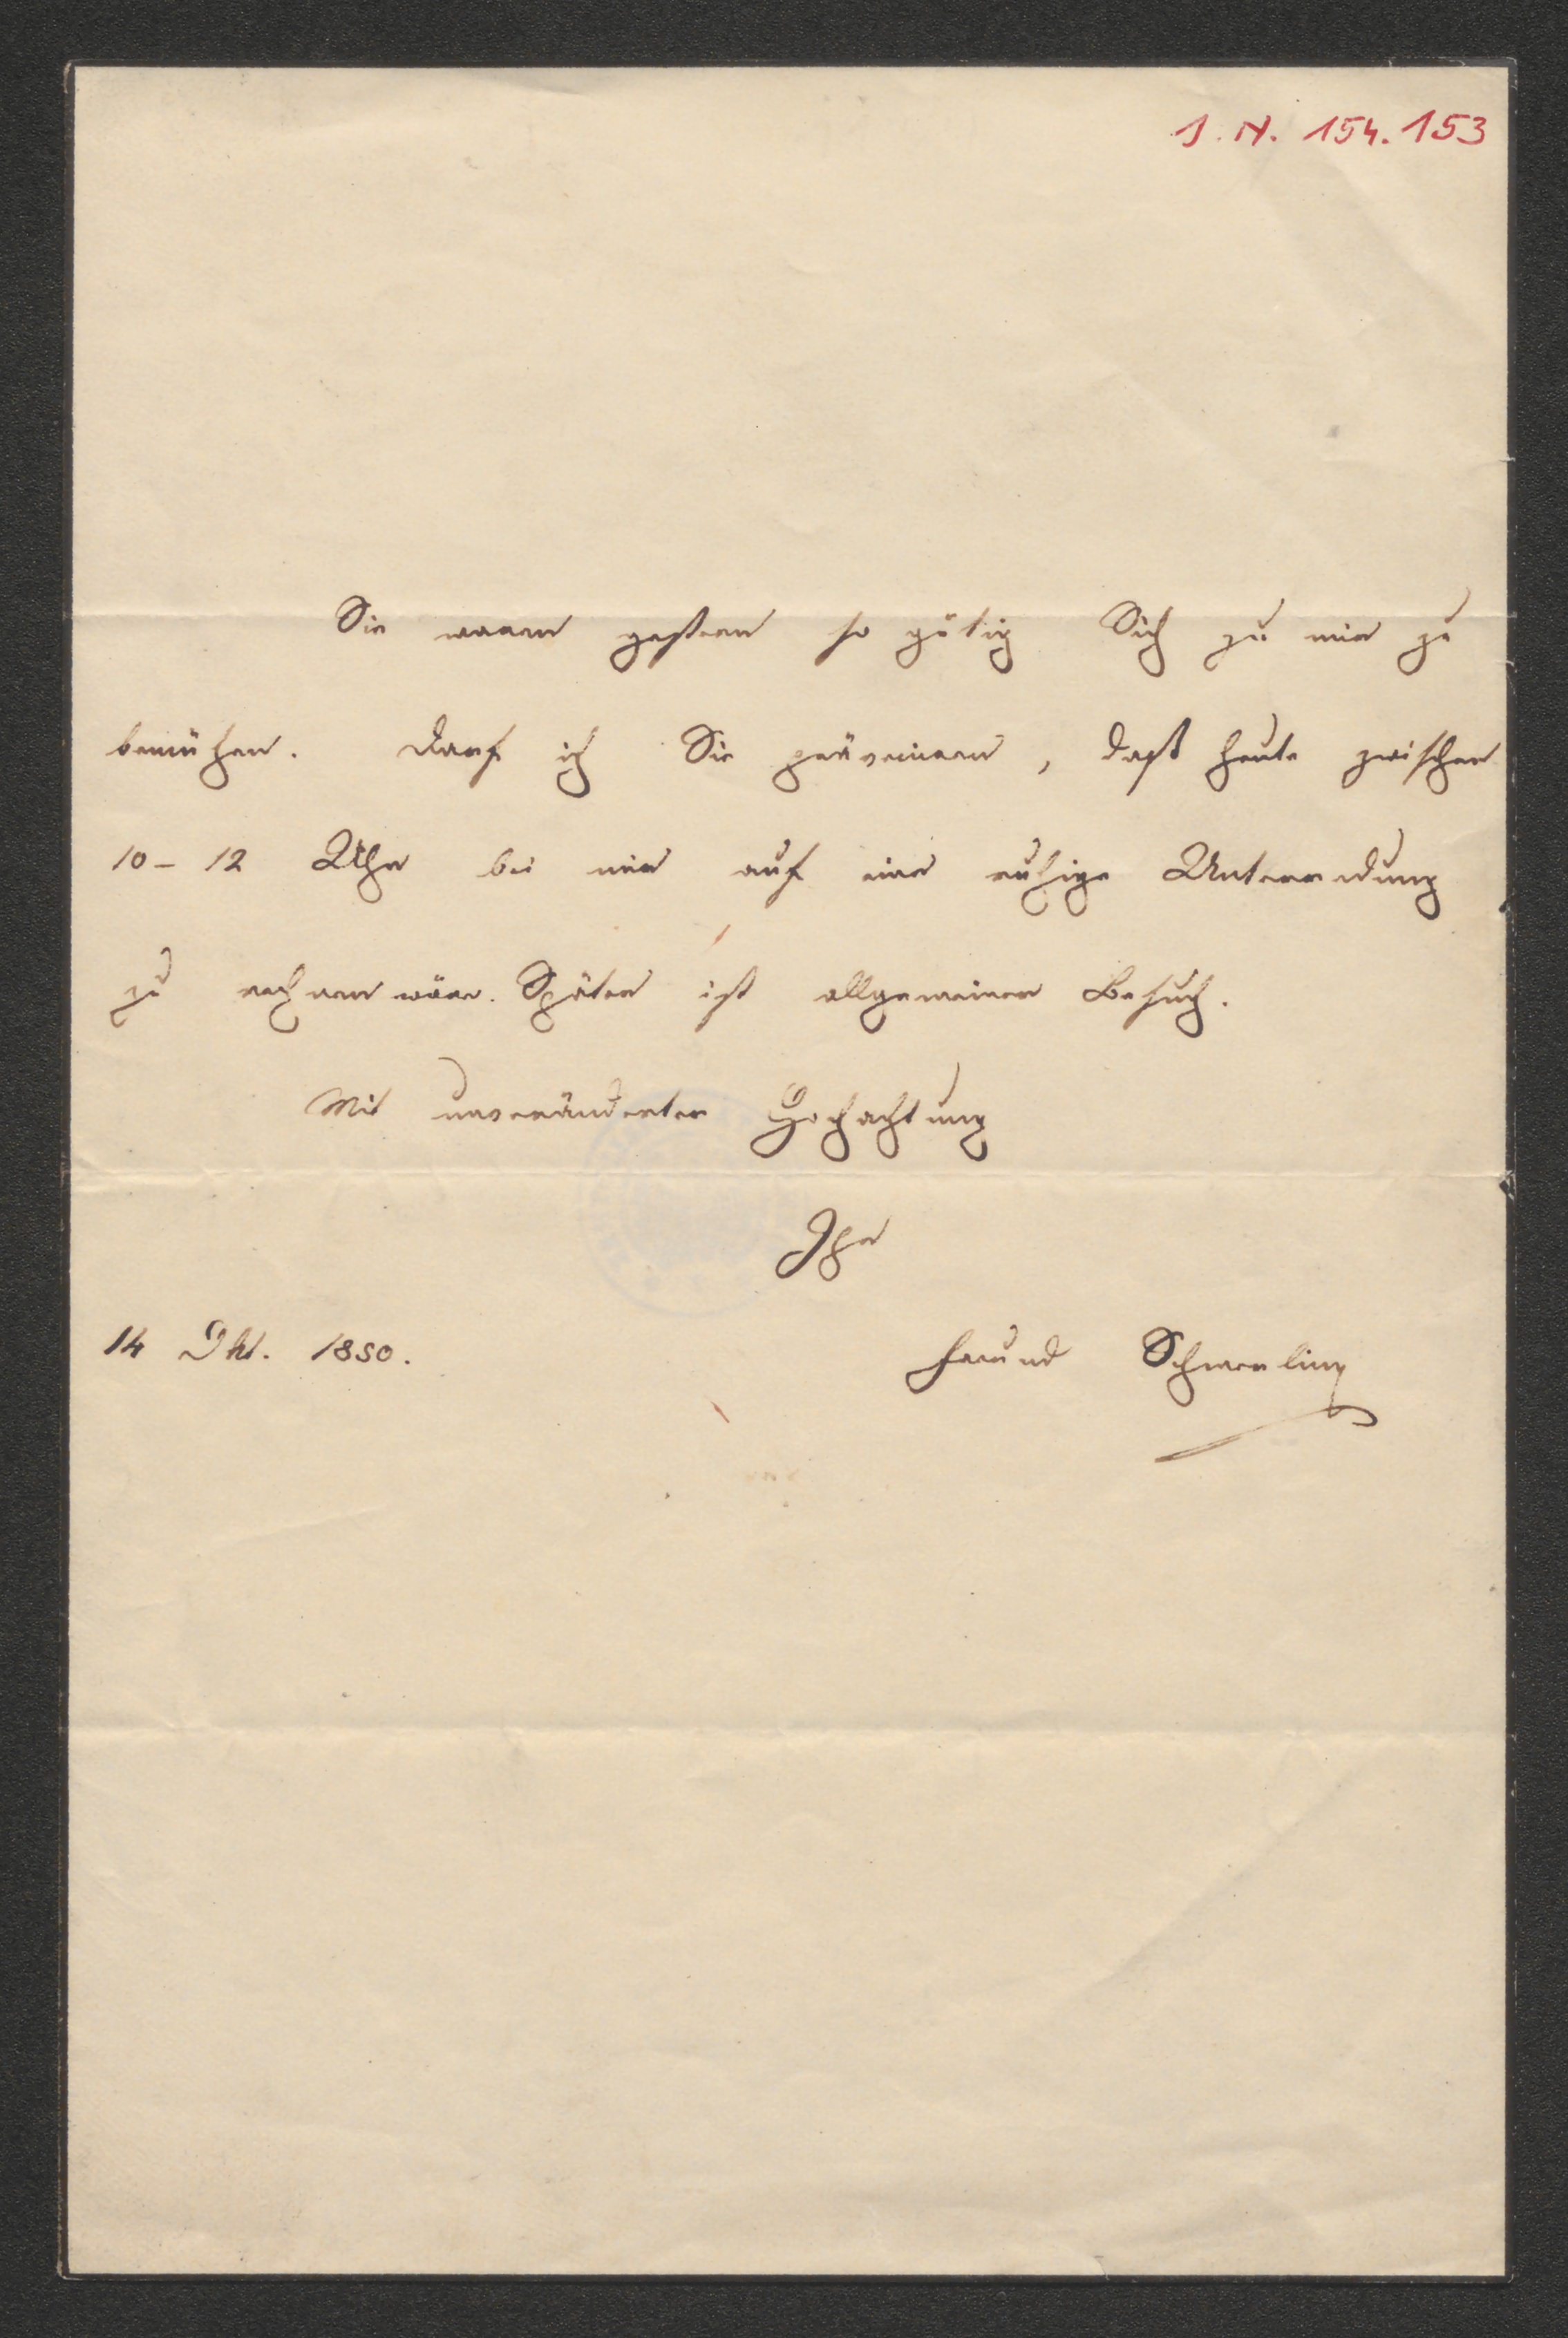 J. N. 154.153
Sie waren gestern so gütig Sich zu mir zu
bemühen. Darf ich Sie präveniren, daß heute zwischen
10 – 12 Uhr bei mir auf eine ruhige Unterredung
zu rechnen wäre. Später ist allgemeiner Besuch.
Mit unveränderter Hochachtung
Ihr
14 Okt. 1850.
Freund Schmerling